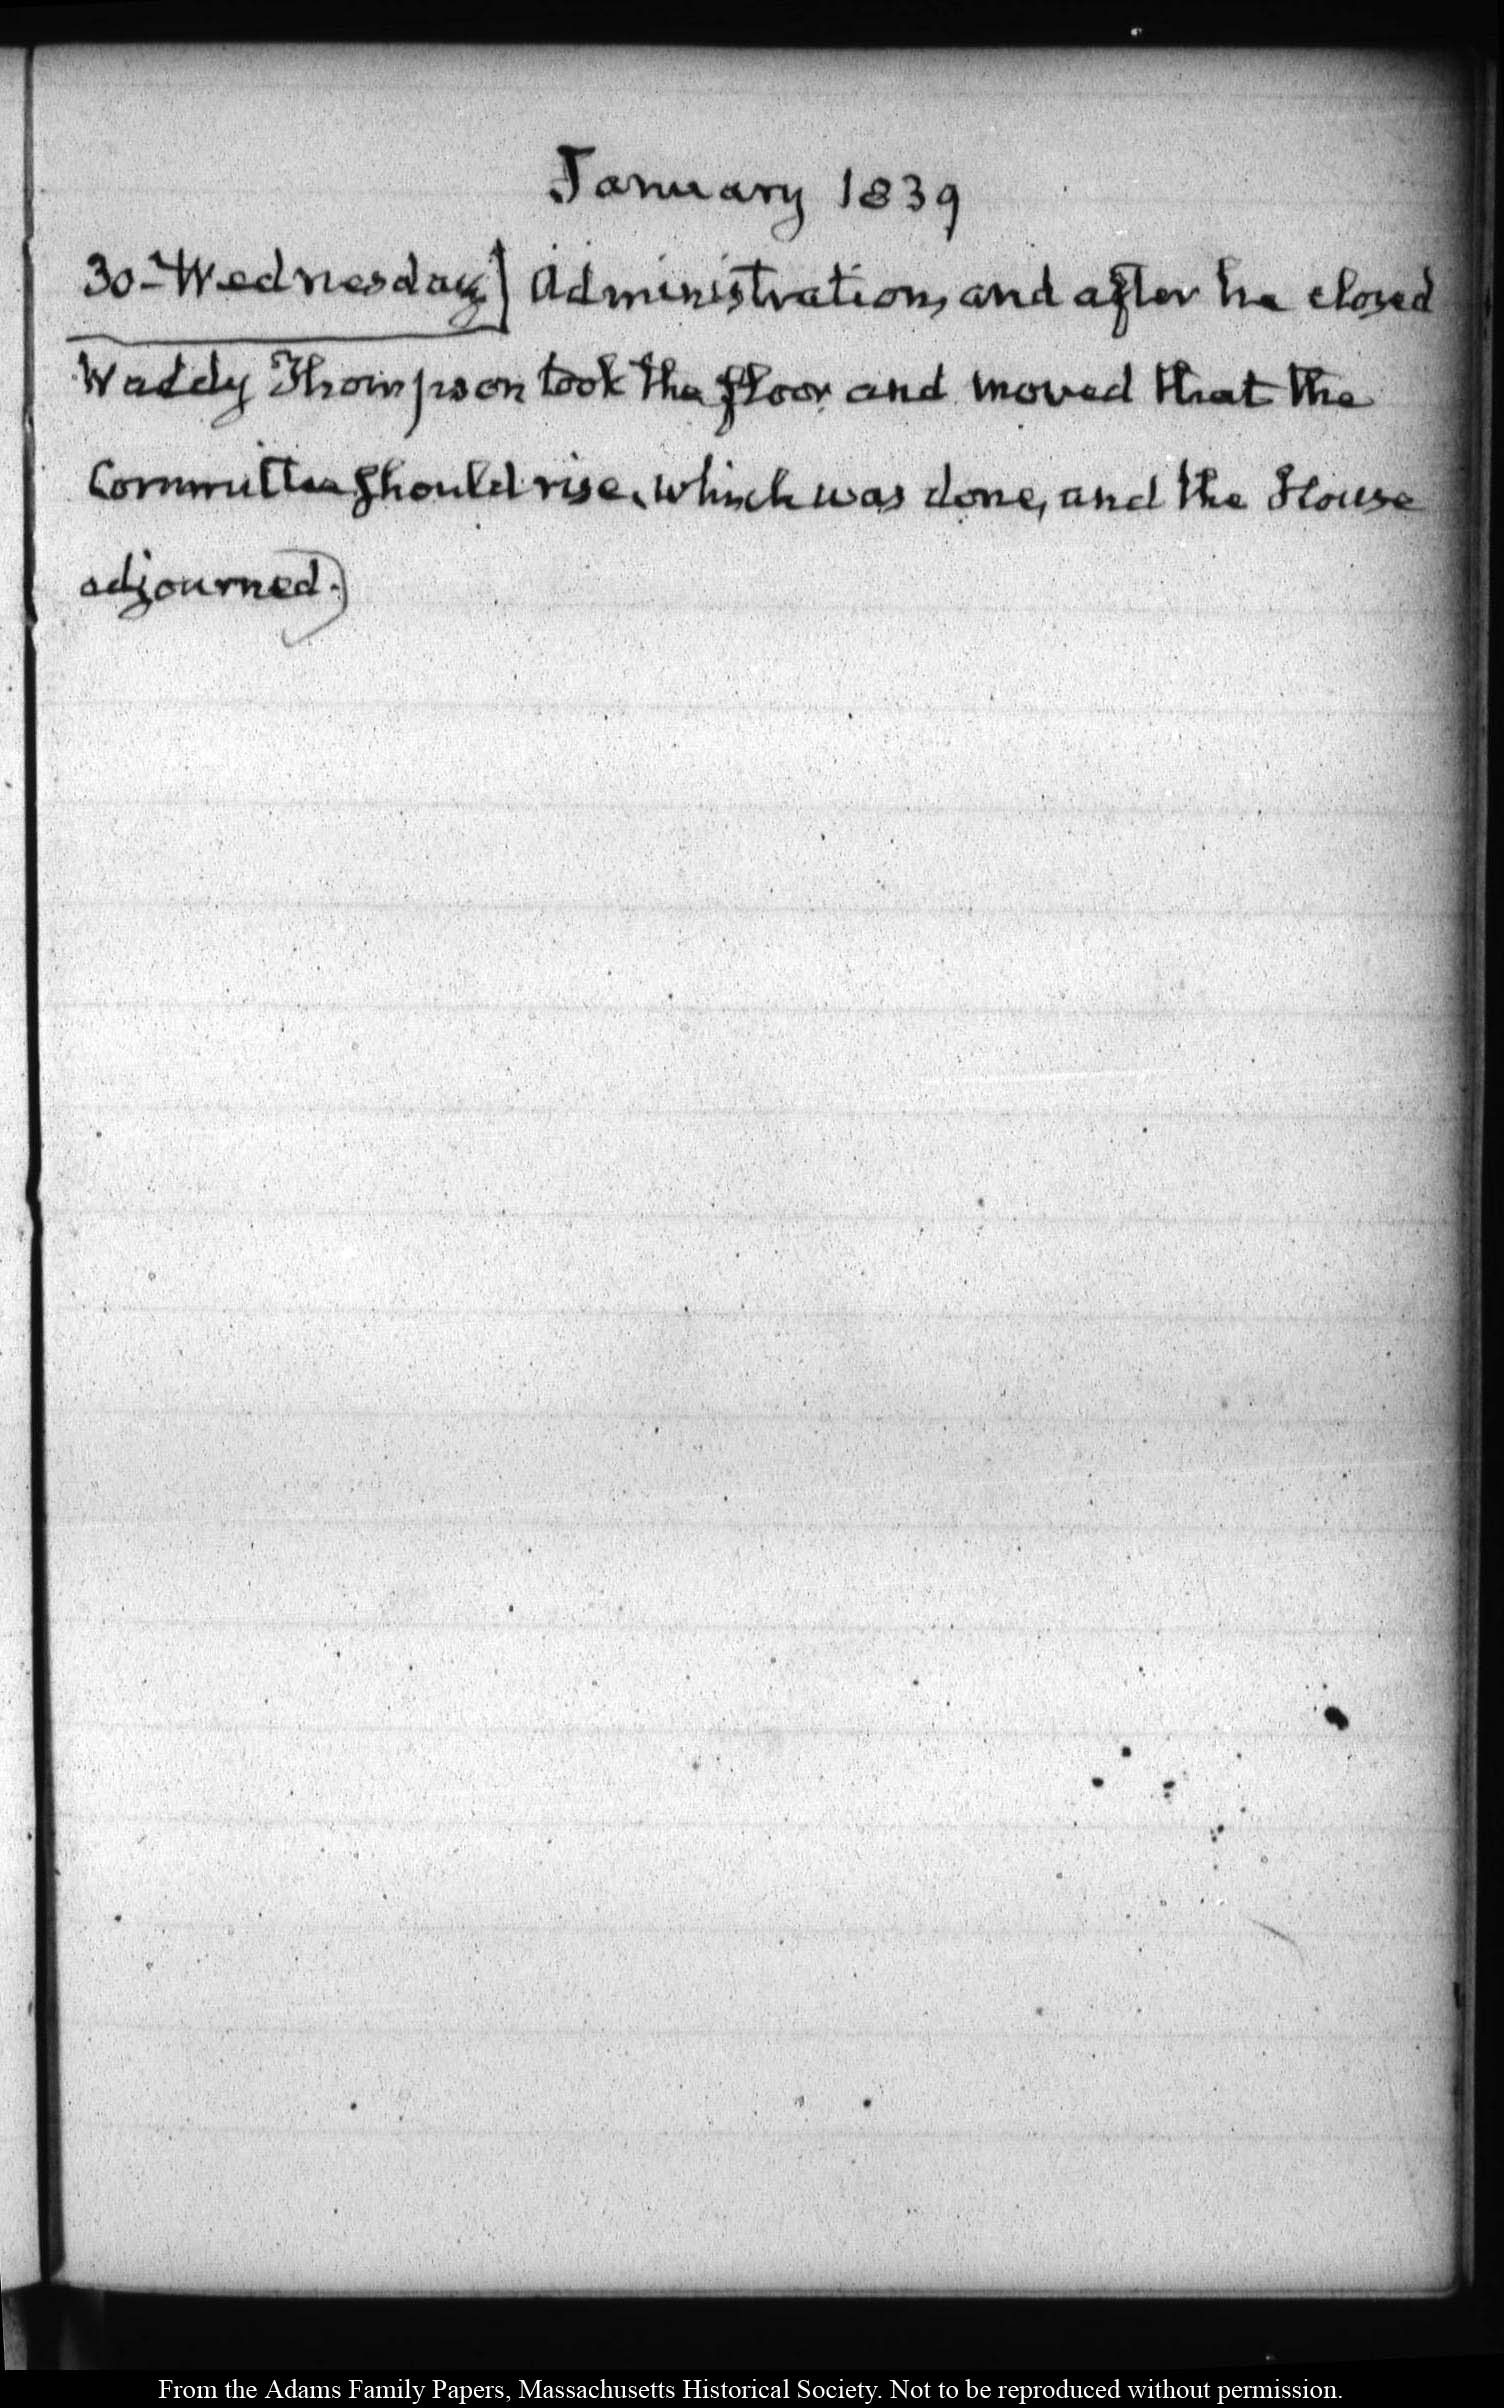 January 1839
30-Wednesday] Administration, and after he closed
Waddy Thompson took the floor and moved that the
Committee should rise, which was done, and the House
adjourned.)
From the Adams Family Papers, Massachusetts Historical Society. Not to be reproduced without permission.